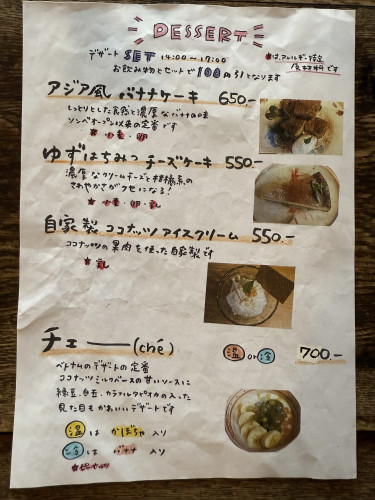 DESSERT
デザート SET 14:00〜17:00
お飲み物とセットで100円引となります
★は、アレルギー特定
原材料です
アジア風 バナナケーキ 650.-
しっとりとした食感と濃厚なバナナの味
ソンベオープン以来の定番です
★ 小麦・卵
ゆずはちみつ チーズケーキ 550.-
濃厚なクリームチーズと柑橘系の
さわやかさがクセになる!
★ 小麦・卵・乳
自家製 ココナッツアイスクリーム 550.-
ココナッツの果肉を使った自家製です
★ 乳
チェー(ché) 温 or 冷 700.-
ベトナムのデザートの定番
ココナッツミルクベースの甘いソースに
緑豆、白玉、カラフルタピオカの入った
見た目もかわいいデザートです
温 は かぼちゃ 入り
冷 は バナナ 入り